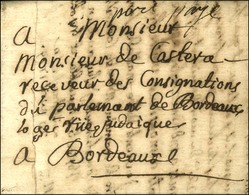 port payé
a Monsieur
Monsieur de Castera
receveur des Consignations
du parlemant de Bordeaux
logés rüe judaique
a Bordeaux